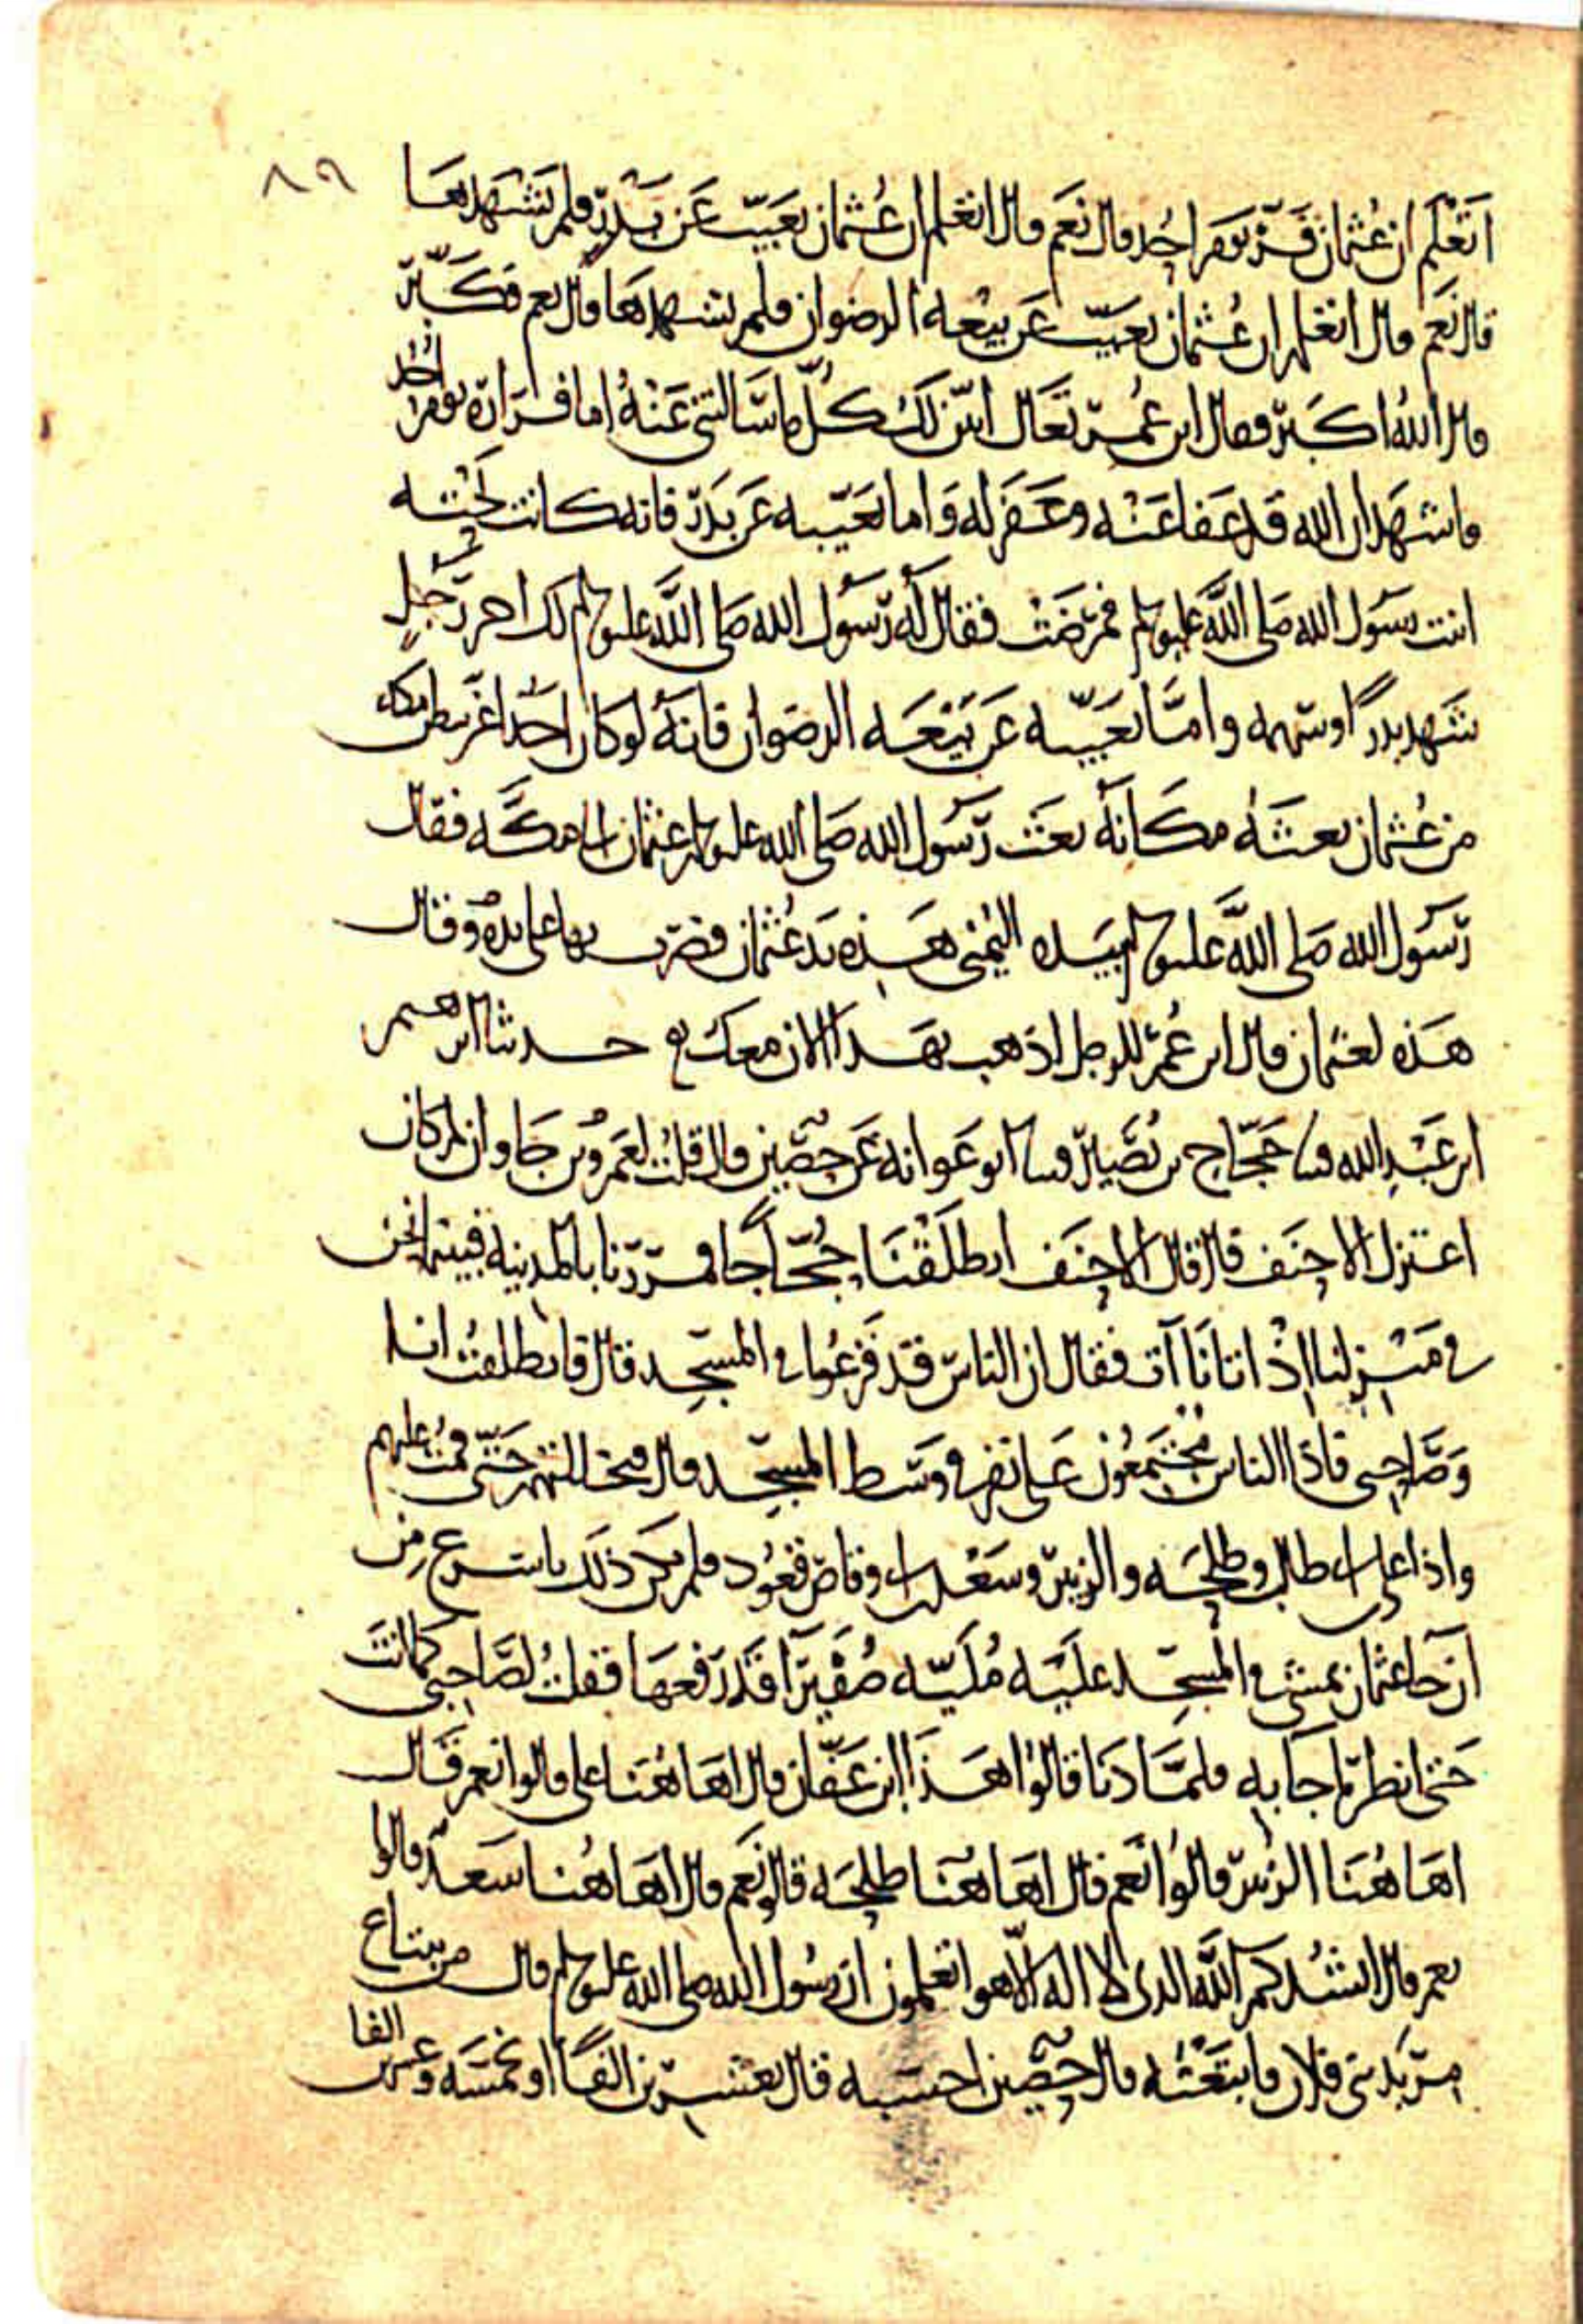 ٨٩
اتعلم ان عثمان فر يوم احد قال نعم قال اتعلم ان عثمان تغيب عن بدر فلم يشهدها
قال نعم قال اتعلم ان عثمان تغيب عن بيعه الرضوان فلم يشهدها قال نعم فكبر
قال الله اكبر فقال ابن عمر تعال ابين لك كل ما سالتني عنه اما فراره يوم احد
فاشهد ان الله قد عفا عنه وغفر له واما تغيبه عن بدر فانه كانت تحته
ابنت رسول الله صلى الله عليه وسلم فمرضت فقال له رسول الله صلى الله عليه وسلم لك اجر رجل
شهد بدرا وسهمه واما تغيبه عن بيعه الرضوان فانه لو كان احدا اعز ببطن مكه
من عثمان بعثه مكانه بعث رسول الله صلى الله عليه وسلم عثمان الى مكه فقال
رسول الله صلى الله عليه وسلم بيده اليمنى هذه يد عثمان فضرب بها على يده وقال
هذه لعثمان قال ابن عمر للرجل اذهب بهذا الان معك حدثنا ابرهيم
ابن عبد الله حجاج بن نصير ابو عوانه عن حصين قال قلت لعمرو بن جاوان لم كان
اعتزل الاحنف قال قال الاحنف انطلقنا حجاجا فمررنا بالمدينه فبينما نحن
في منزلنا اذ اتانا آت فقال ان الناس قد فزعوا في المسجد قال فانطلقت انا
وصاحبي فاذا الناس مجتمعون على نفر في وسط المسجد قال فتخللتهم حتى قمت عليهم
واذا علي بن ابي طالب وطلحه والزبير وسعد بن ابي وقاص قعود فلم يكن ذلك باسرع من
ان جا عثمان يمشي في المسجد عليه مليه صفيرا قد رفعها فقلت لصاحبي كما انت
حتى انظر ما جا به فلما دنا قالوا هذا ابن عفان قال اهاهنا علي قالوا نعم قال
اهاهنا الزبير قالوا نعم قال اهاهنا طلحه قالو نعم قال اهاهنا سعد قالوا
نعم قال انشدكم الله الذي لا اله الا هو اتعلمون ان رسول الله صلى الله عليه وسلم قال من يبتاع
مربد بني فلان فابتعته قال حصين احسبه قال بعشرين الفا او بخمسه وعشرين الفا